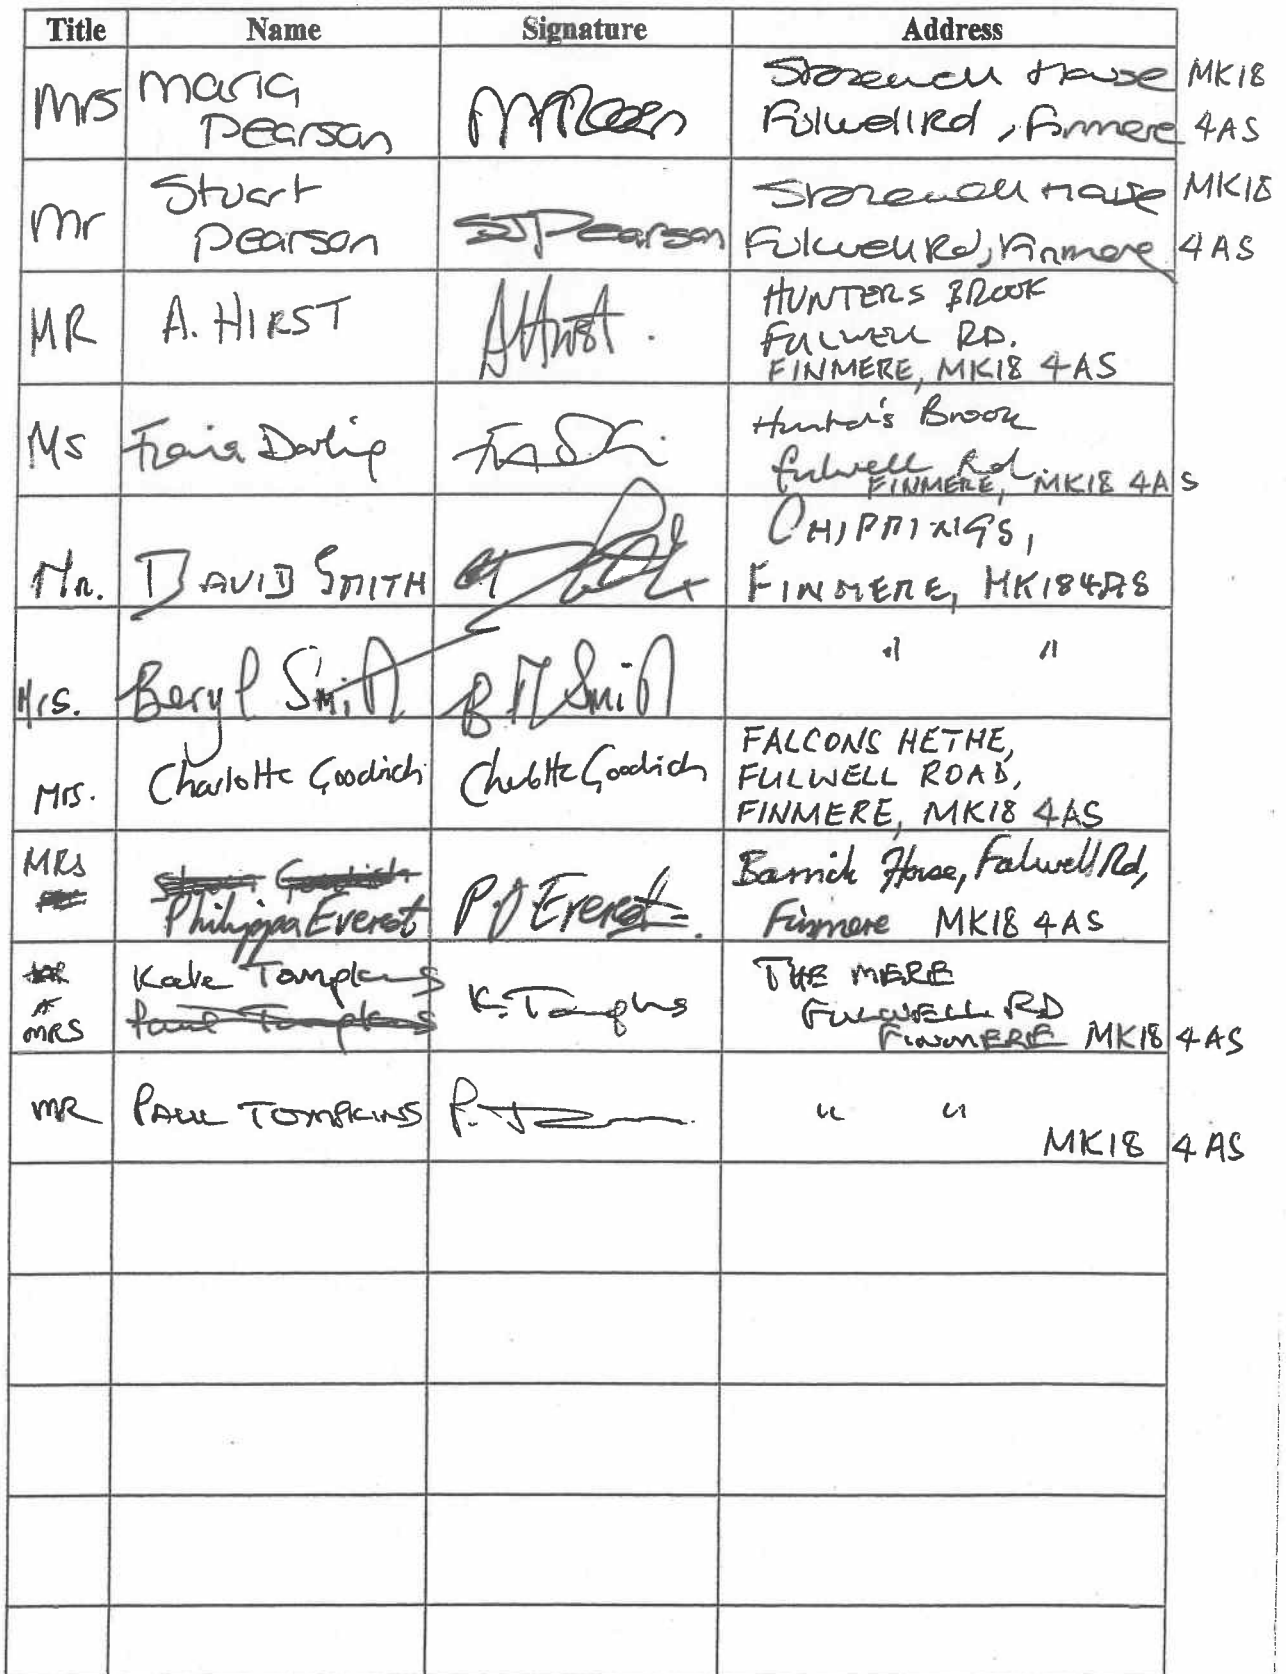 Title Name Signature Address
Mrs Maria Pearson Fulwell Rd, Finmere MK18 4AS
Mr Stuart Pearson SJPearson Fulwell Rd, Finmere MK18 4AS
MR A. HIRST AHirst. HUNTERS BROOK
FULWELL RD.
FINMERE, MK18 4AS
Ms Hunter's Brook
Fulwell Rd.
FINMERE, MK18 4AS
Mr. DAVID SMITH CHIPPINGS,
FINMERE, MK184AS
Mrs. Beryl Smith B M Smith " "
Mrs. Charlotte Goodrich Charlotte Goodrich FALCONS HETHE,
FULWELL ROAD,
FINMERE, MK18 4AS
MRS Philippa Everest P J Everest House, Fulwell Rd,
Finmere MK18 4AS
MRS Kate Tompkins K. Tompkins THE MERE
FULWELL RD
FINMERE MK18 4AS
MR PAUL TOMPKINS " "
MK18 4AS